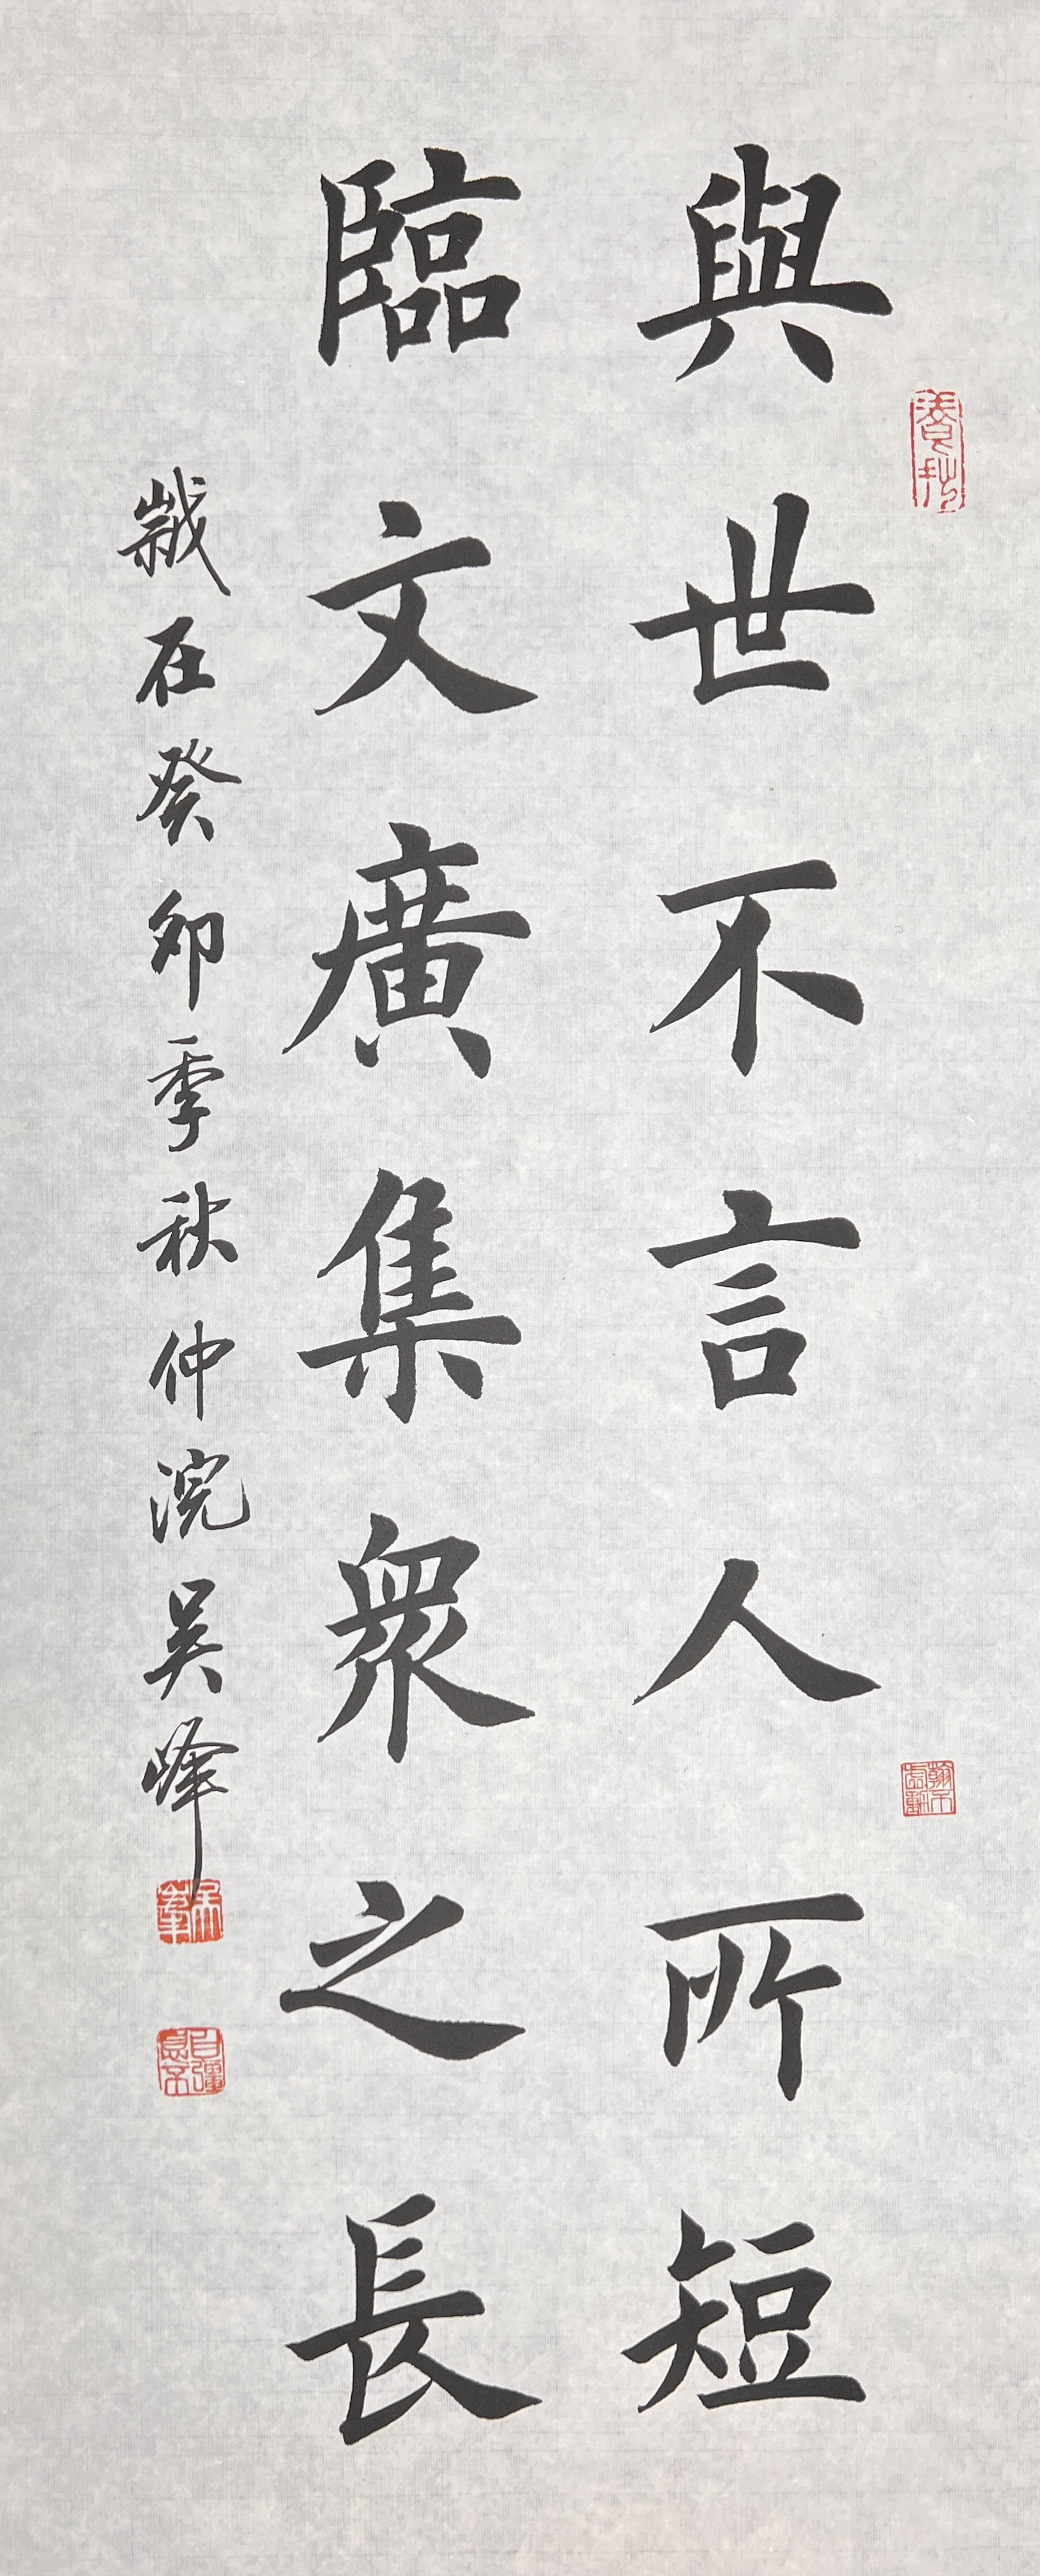 與世不言人所短
臨文廣集眾之長
歲在癸卯季秋仲浣吴峰